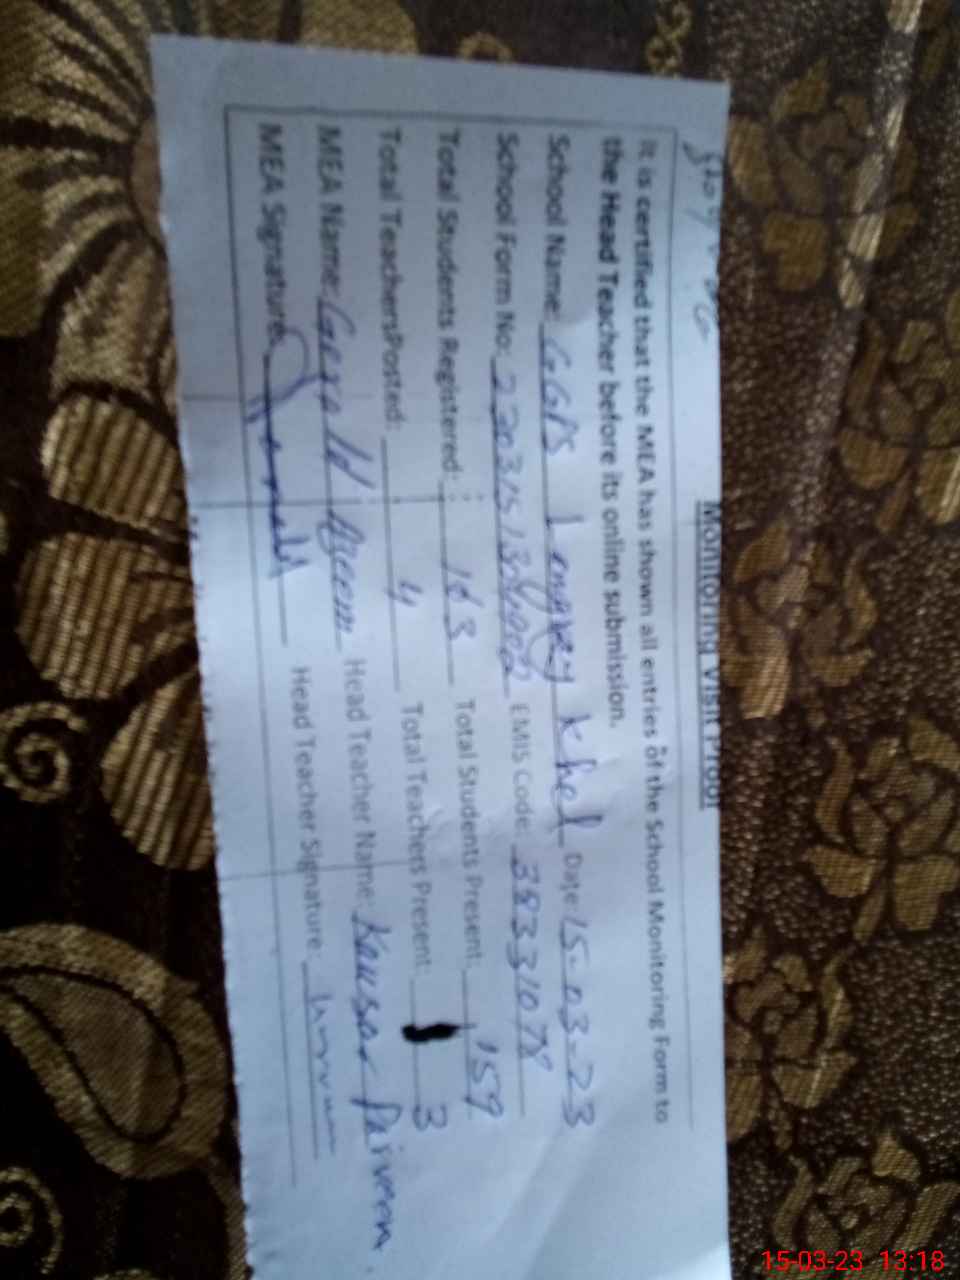 Monitoring Visit Proof
It is certified that the MEA has shown all entries of the School Monitoring Form to
the Head Teacher before its online submission.
School Name: GGPS Date: 15-03-23
School Form No: EMIS Code: 38331078
Total Students Registered: 163 Total Students Present: 159
Total Teachers Posted: 4 Total Teachers Present: 3
MEA Name: Gerald Azeem Head Teacher Name: Kausar Parveen
MEA Signature: Head Teacher Signature:
15-03-23 13:18